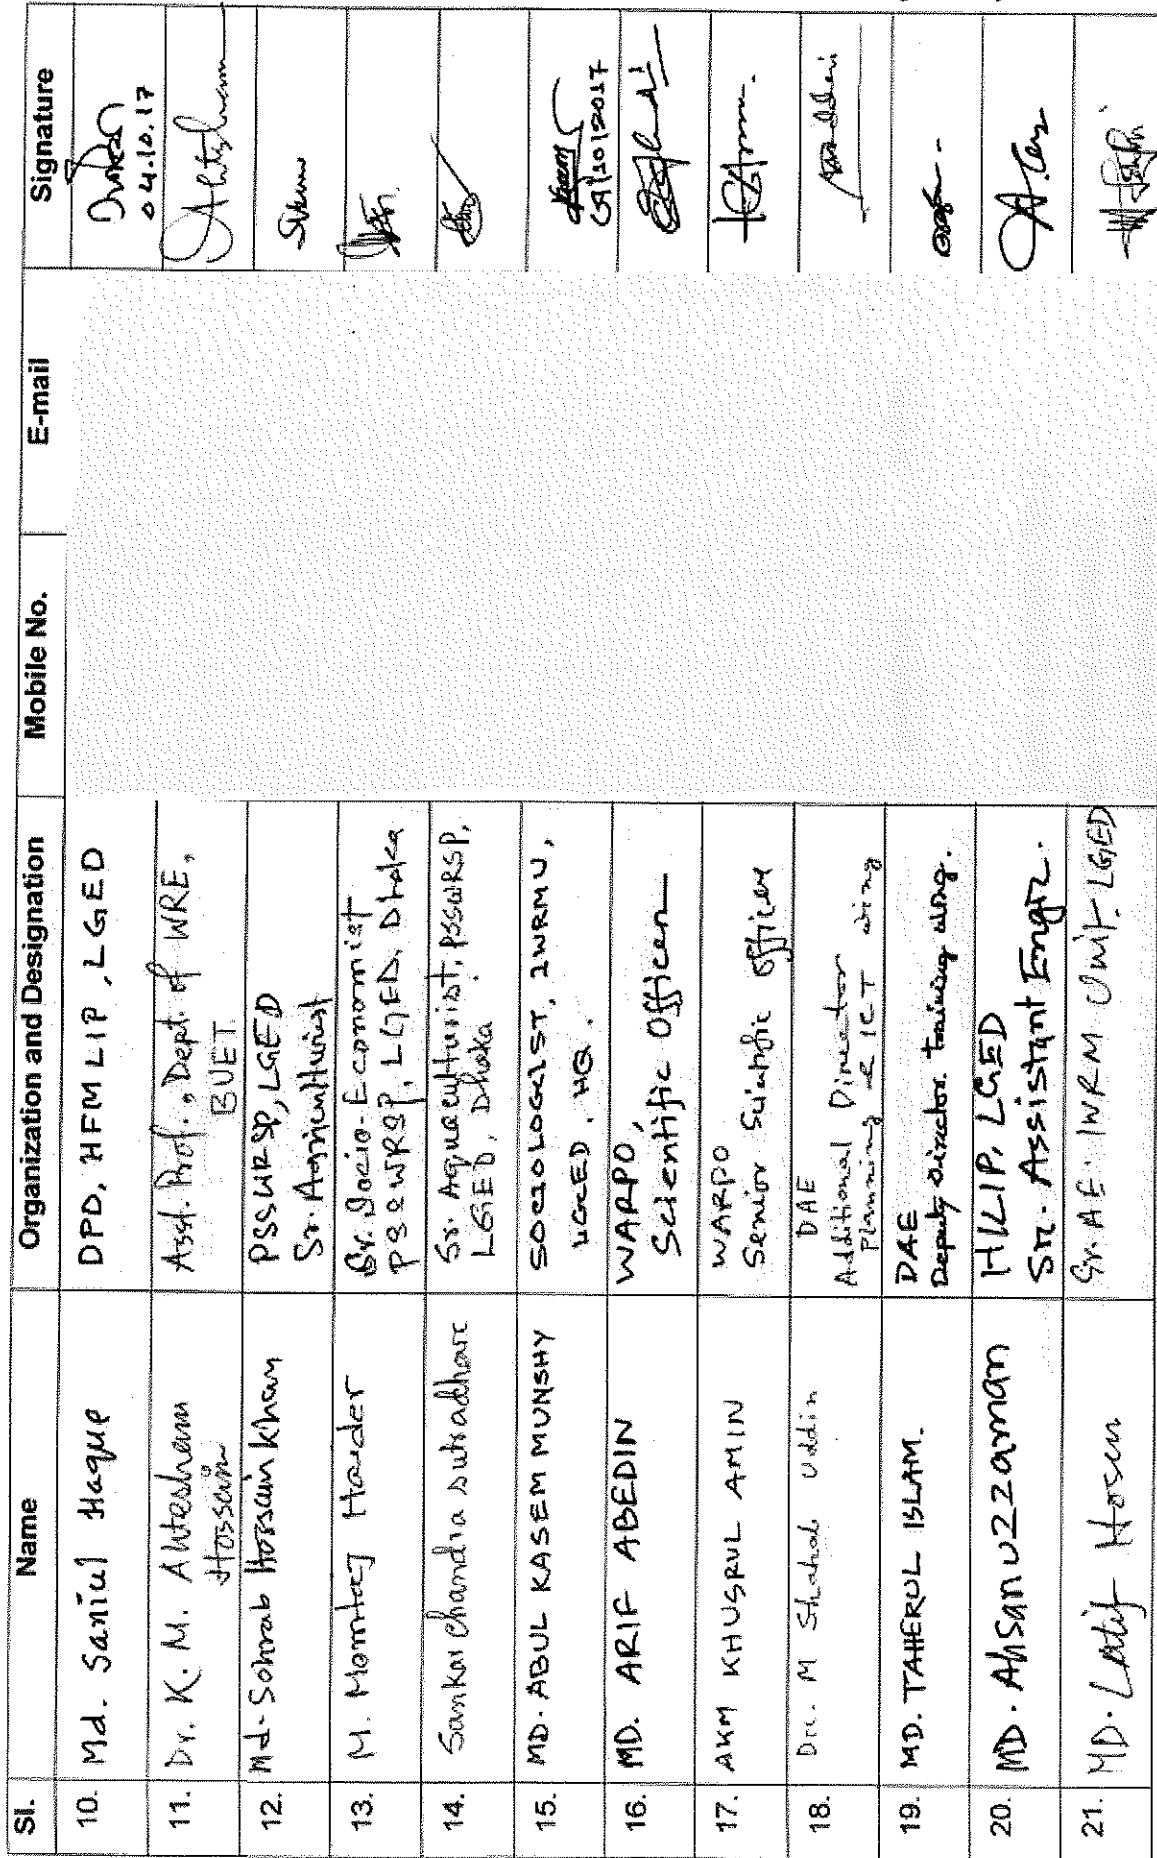 Sl. Name Organization and Designation Mobile No. E-mail Signature
10. Md. Saniul Haque DPD, HFMLIP, LGED
04.10.17
11. Dr. K. M. Ahtesham Asst. Prof., Dept. of WRE,
Hossain BUET
Ahtesham
12. Md. Sohrab Hossain Khan PSSWRSP, LGED
Sr. Agriculturist
13. M. Momtaj Howder Sr. Socio-Economist
PSSWRSP, LGED, Dhaka
14. Sankar Chandra sutradhar Sr. Aquaculturist, PSSWRSP,
LGED, Dhaka
15. MD. ABUL KASEM MUNSHY SOCIOLOGIST, IWRMU,
LGED, HQ.
04/10/2017
16. MD. ARIF ABEDIN WARPO,
Scientific Officer
17. AKM KHUSRUL AMIN WARPO
Senior Scientific Officer
18. Dr. M Shahab Uddin DAE
Additional Director
Planning & ICT wing
19. MD. TAHERUL ISLAM. DAE
Deputy Director training wing.
20. MD. Ahsanuzzaman HILIP, LGED
Sr. Assistant Engr.
21. MD. Latif Hosen Sr. AE. IWRM Unit, LGED